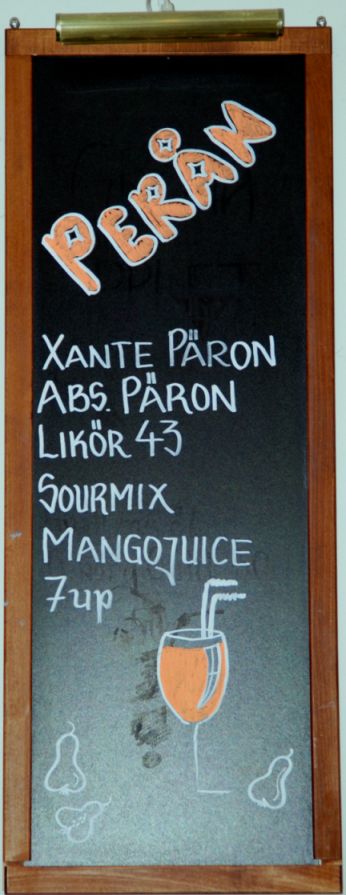 PERÅN
XANTE PÄRON
ABS. PÄRON
LIKÖR 43
SOURMIX
MANGOJUICE
7up